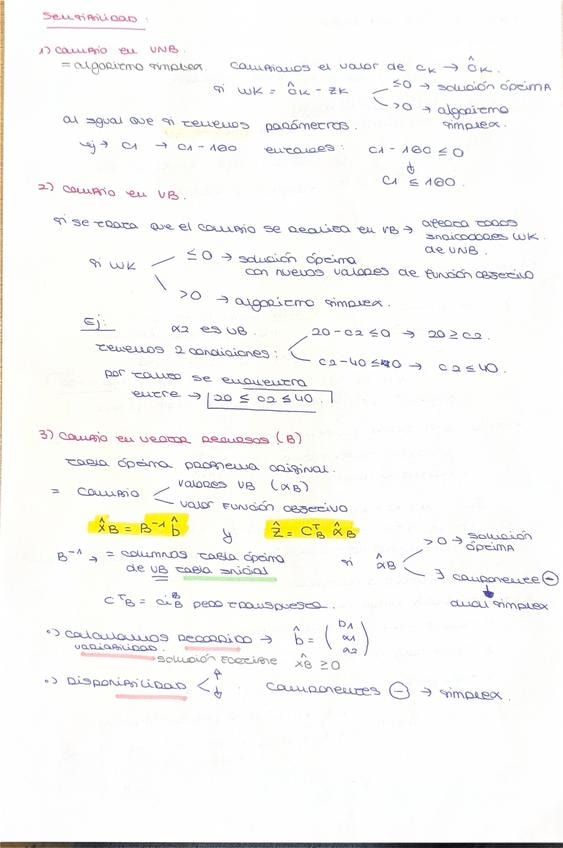 SENSIBILIDAD:
1) CAMBIO EN VNB.
= algoritmo simplex. Cambiamos el valor de CK → ĈK.
si WK = ĈK - ZK
≤0 → solución óptima
>0 → algoritmo simplex.
al igual que si tenemos parámetros.
ej → C1 → C1 - 160 entonces: C1 - 160 ≤ 0
↓
C1 ≤ 160.
2) CAMBIO EN VB.
si se trata que el cambio se realiza en VB → afecta todos
indicadores WK
de VNB.
si WK
≤0 → solución óptima
con nuevos valores de función objetivo
>0 → algoritmo simplex.
Ej: x2 es VB. 20 - C2 ≤ 0 → 20 ≥ C2.
tenemos 2 condiciones:
C2 - 40 ≤ 0 → C2 ≤ 40.
por tanto se encuentra
entre → 20 ≤ C2 ≤ 40.
3) CAMBIO EN VECTOR RECURSOS (B)
tabla óptima problema original.
= cambio
valores VB (xB)
valor función objetivo
x̂B = B⁻¹ b̂ y ẑ = CᵀB x̂B
B⁻¹ → = columnas tabla óptima
de VB tabla inicial
si x̂B
>0 → solución óptima
∃ componente ⊖
↓
dual simplex
CᵀB = pero transpuesta.
•) Calculamos recorrido → b̂ = (b1 a1 a2)
variabilidad.
solución factible x̂B ≥ 0
•) Disponibilidad < ↑ ↓ componentes ⊖ → simplex.